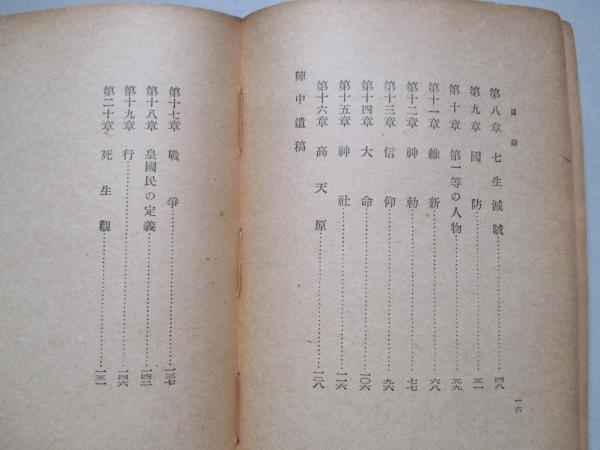 目錄
第八章 七生滅賊……四八
第九章 國防……五一
第十章 第一等の人物……五九
第十一章 維新……六八
第十二章 神勅……七七
第十三章 信仰……九六
第十四章 大命……一〇六
第十五章 神社……一一六
第十六章 高天原……一二八
陣中遺稿
一六
第十七章 戰爭……一三七
第十八章 皇國民の定義……一四二
第十九章 行……一四六
第二十章 死生觀……一五一